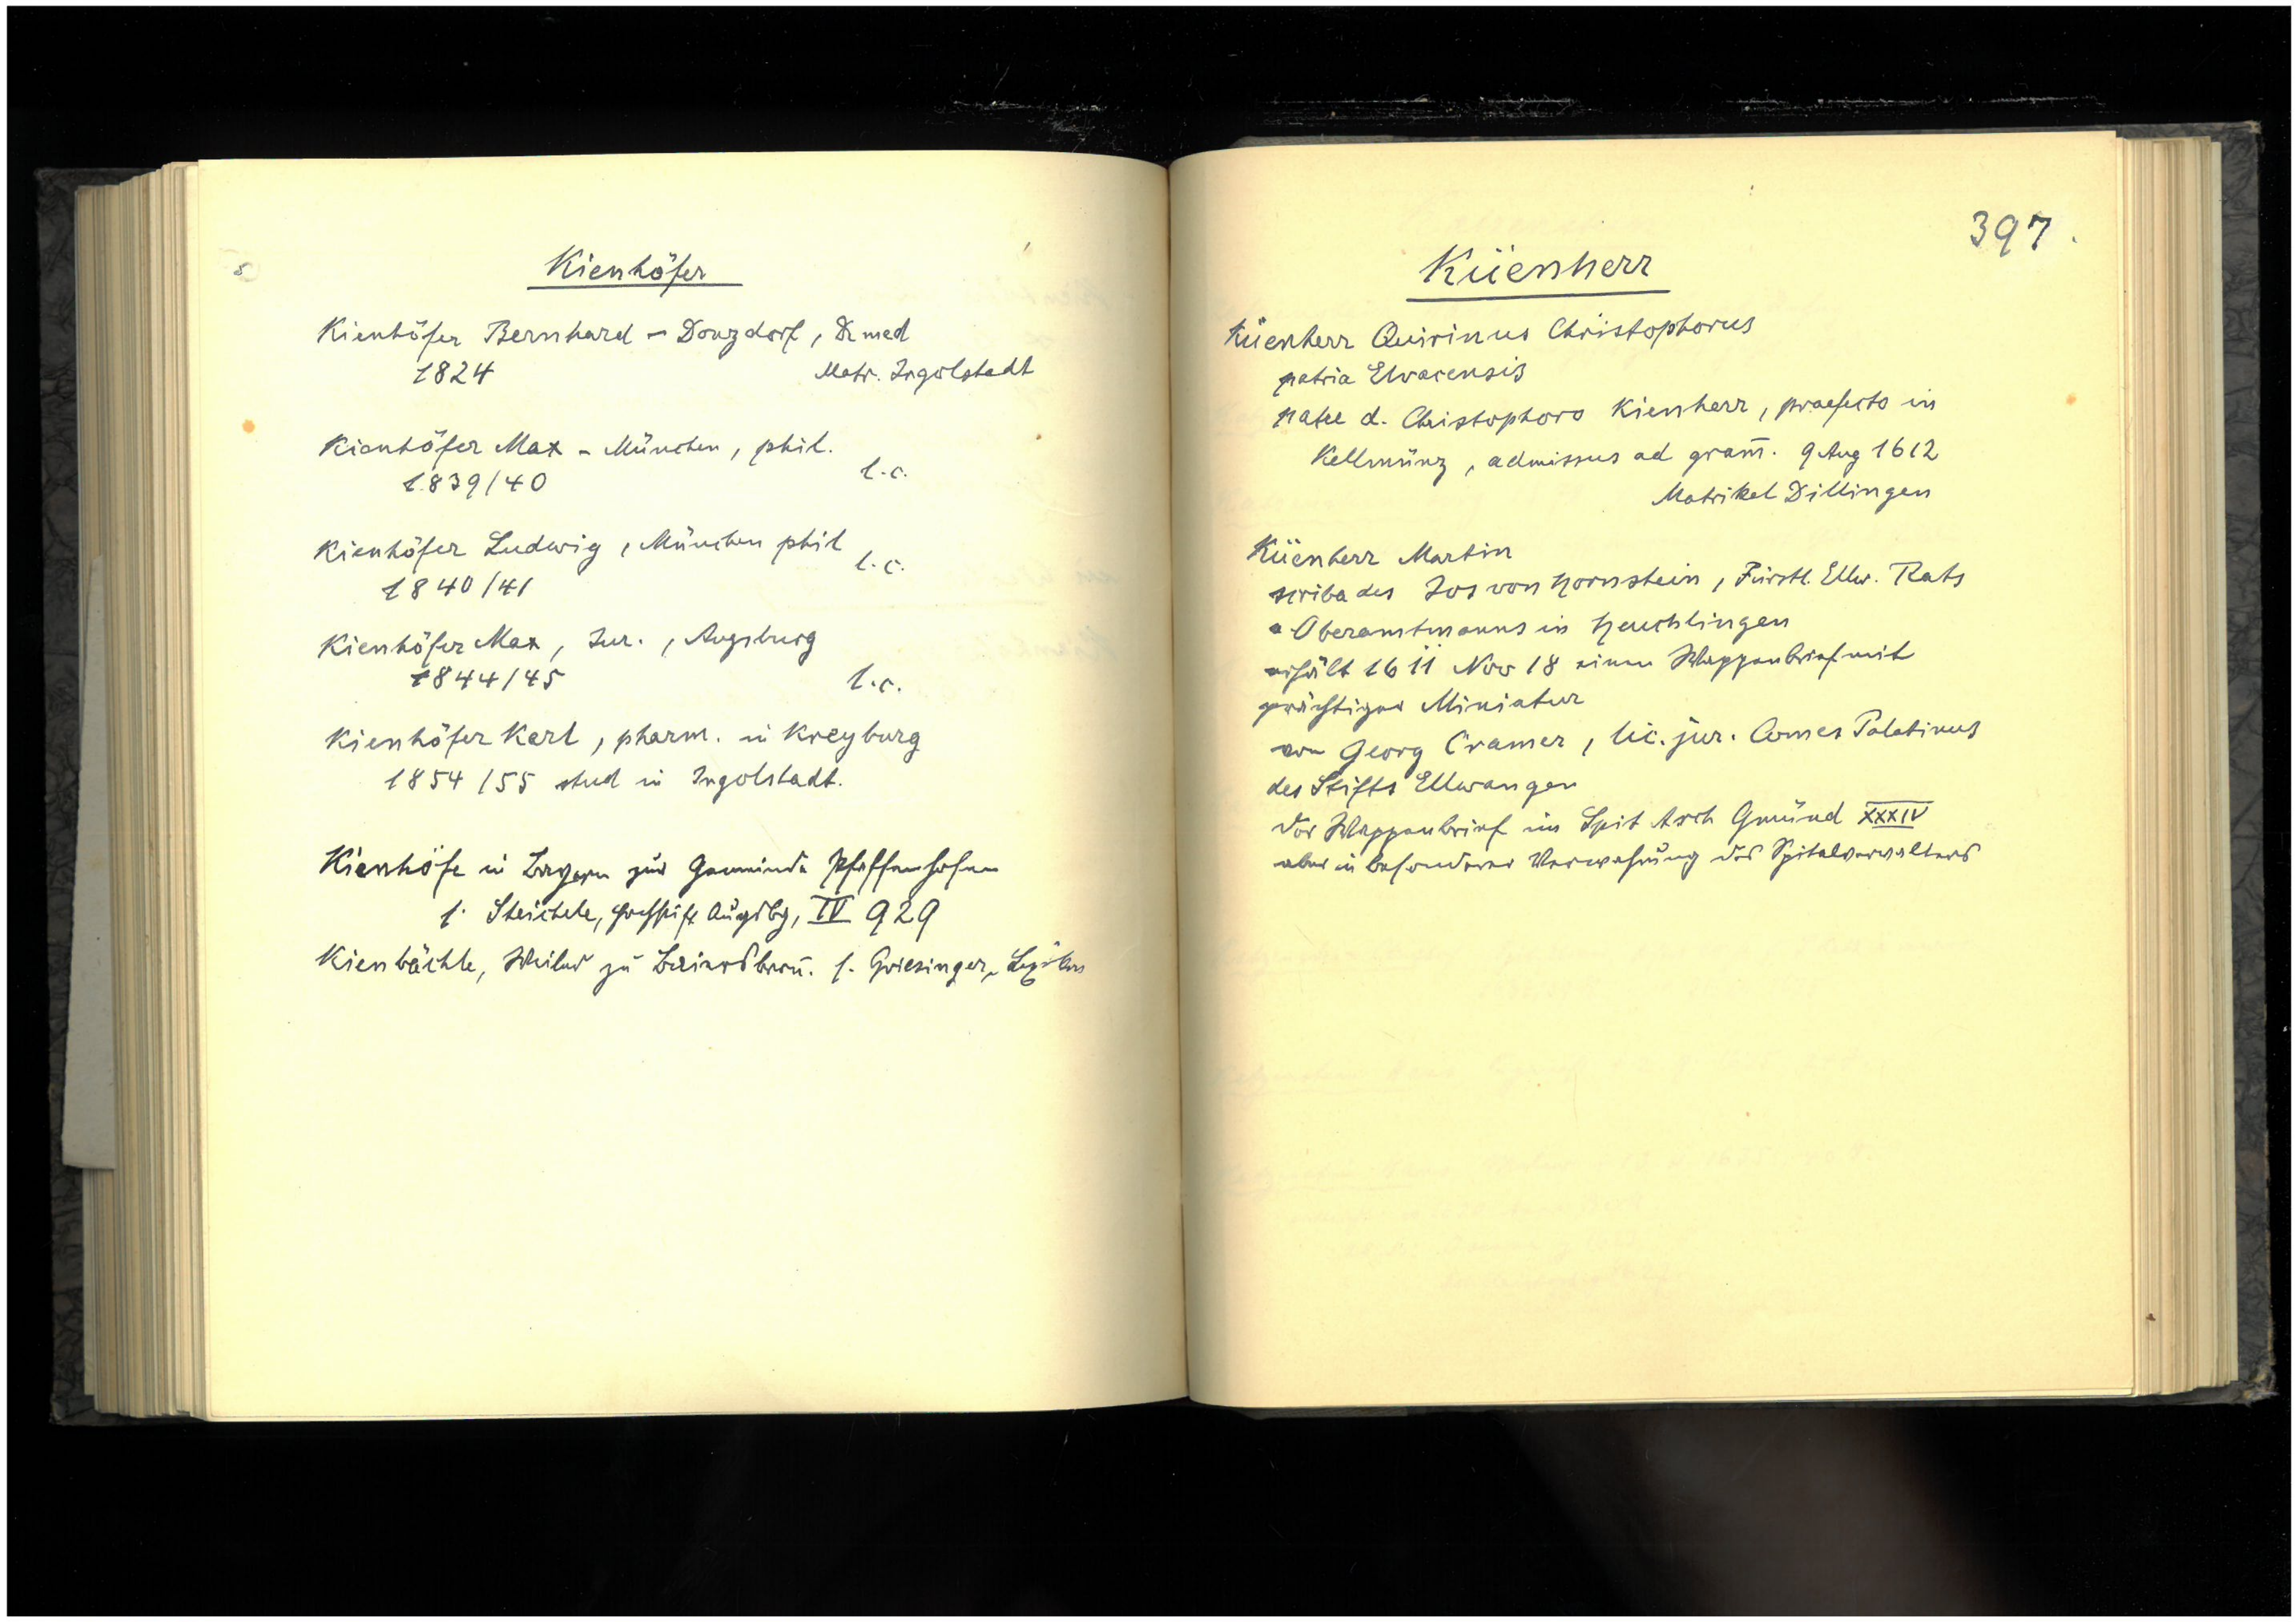 Kienhöfer
Kienhöfer Bernhard - Donzdorf, Dr med
1824 Matr. Ingolstadt
Kienhöfer Max - München, phil.
1839/40 l.c.
Kienhöfer Ludwig, München phil
1840/41 l.c.
Kienhöfer Max, Jur., Augsburg
1844/45 l.c.
Kienhöfer Karl, pharm. in Kreyburg
1854/55 stud in Ingolstadt.
Kienhöfe in Bayern zur Gemeinde Pfaffenhofen
s. Steichele, Augsbg, IV 929
Kienbächle, Weiler zu Baiersbron̄. s. Griesinger, Lexikon
397.
Küenherr
Küenherr Quirinus Christophorus
patria Elvacensis
d. Christophoro Kienherr, praefecto in
Kellmünz, admissus ad gram̄. 9 Aug 1612
Matrikel Dillingen
Küenherr Martin
scriba des Jos von Hornstein, Fürstl. Ellw. Rats
Oberamtmanns in Heuchlingen
erhält 1611 Nov 18 einen Wappenbrief mit
prächtiger Miniatur
von Georg Cramer, lic. jur. Comes Palatinus
des Stifts Ellwangen
Der Wappenbrief im Spit Arch Gmünd XXXIV
aber in besonderer Verwahrung des Spitalverwalters